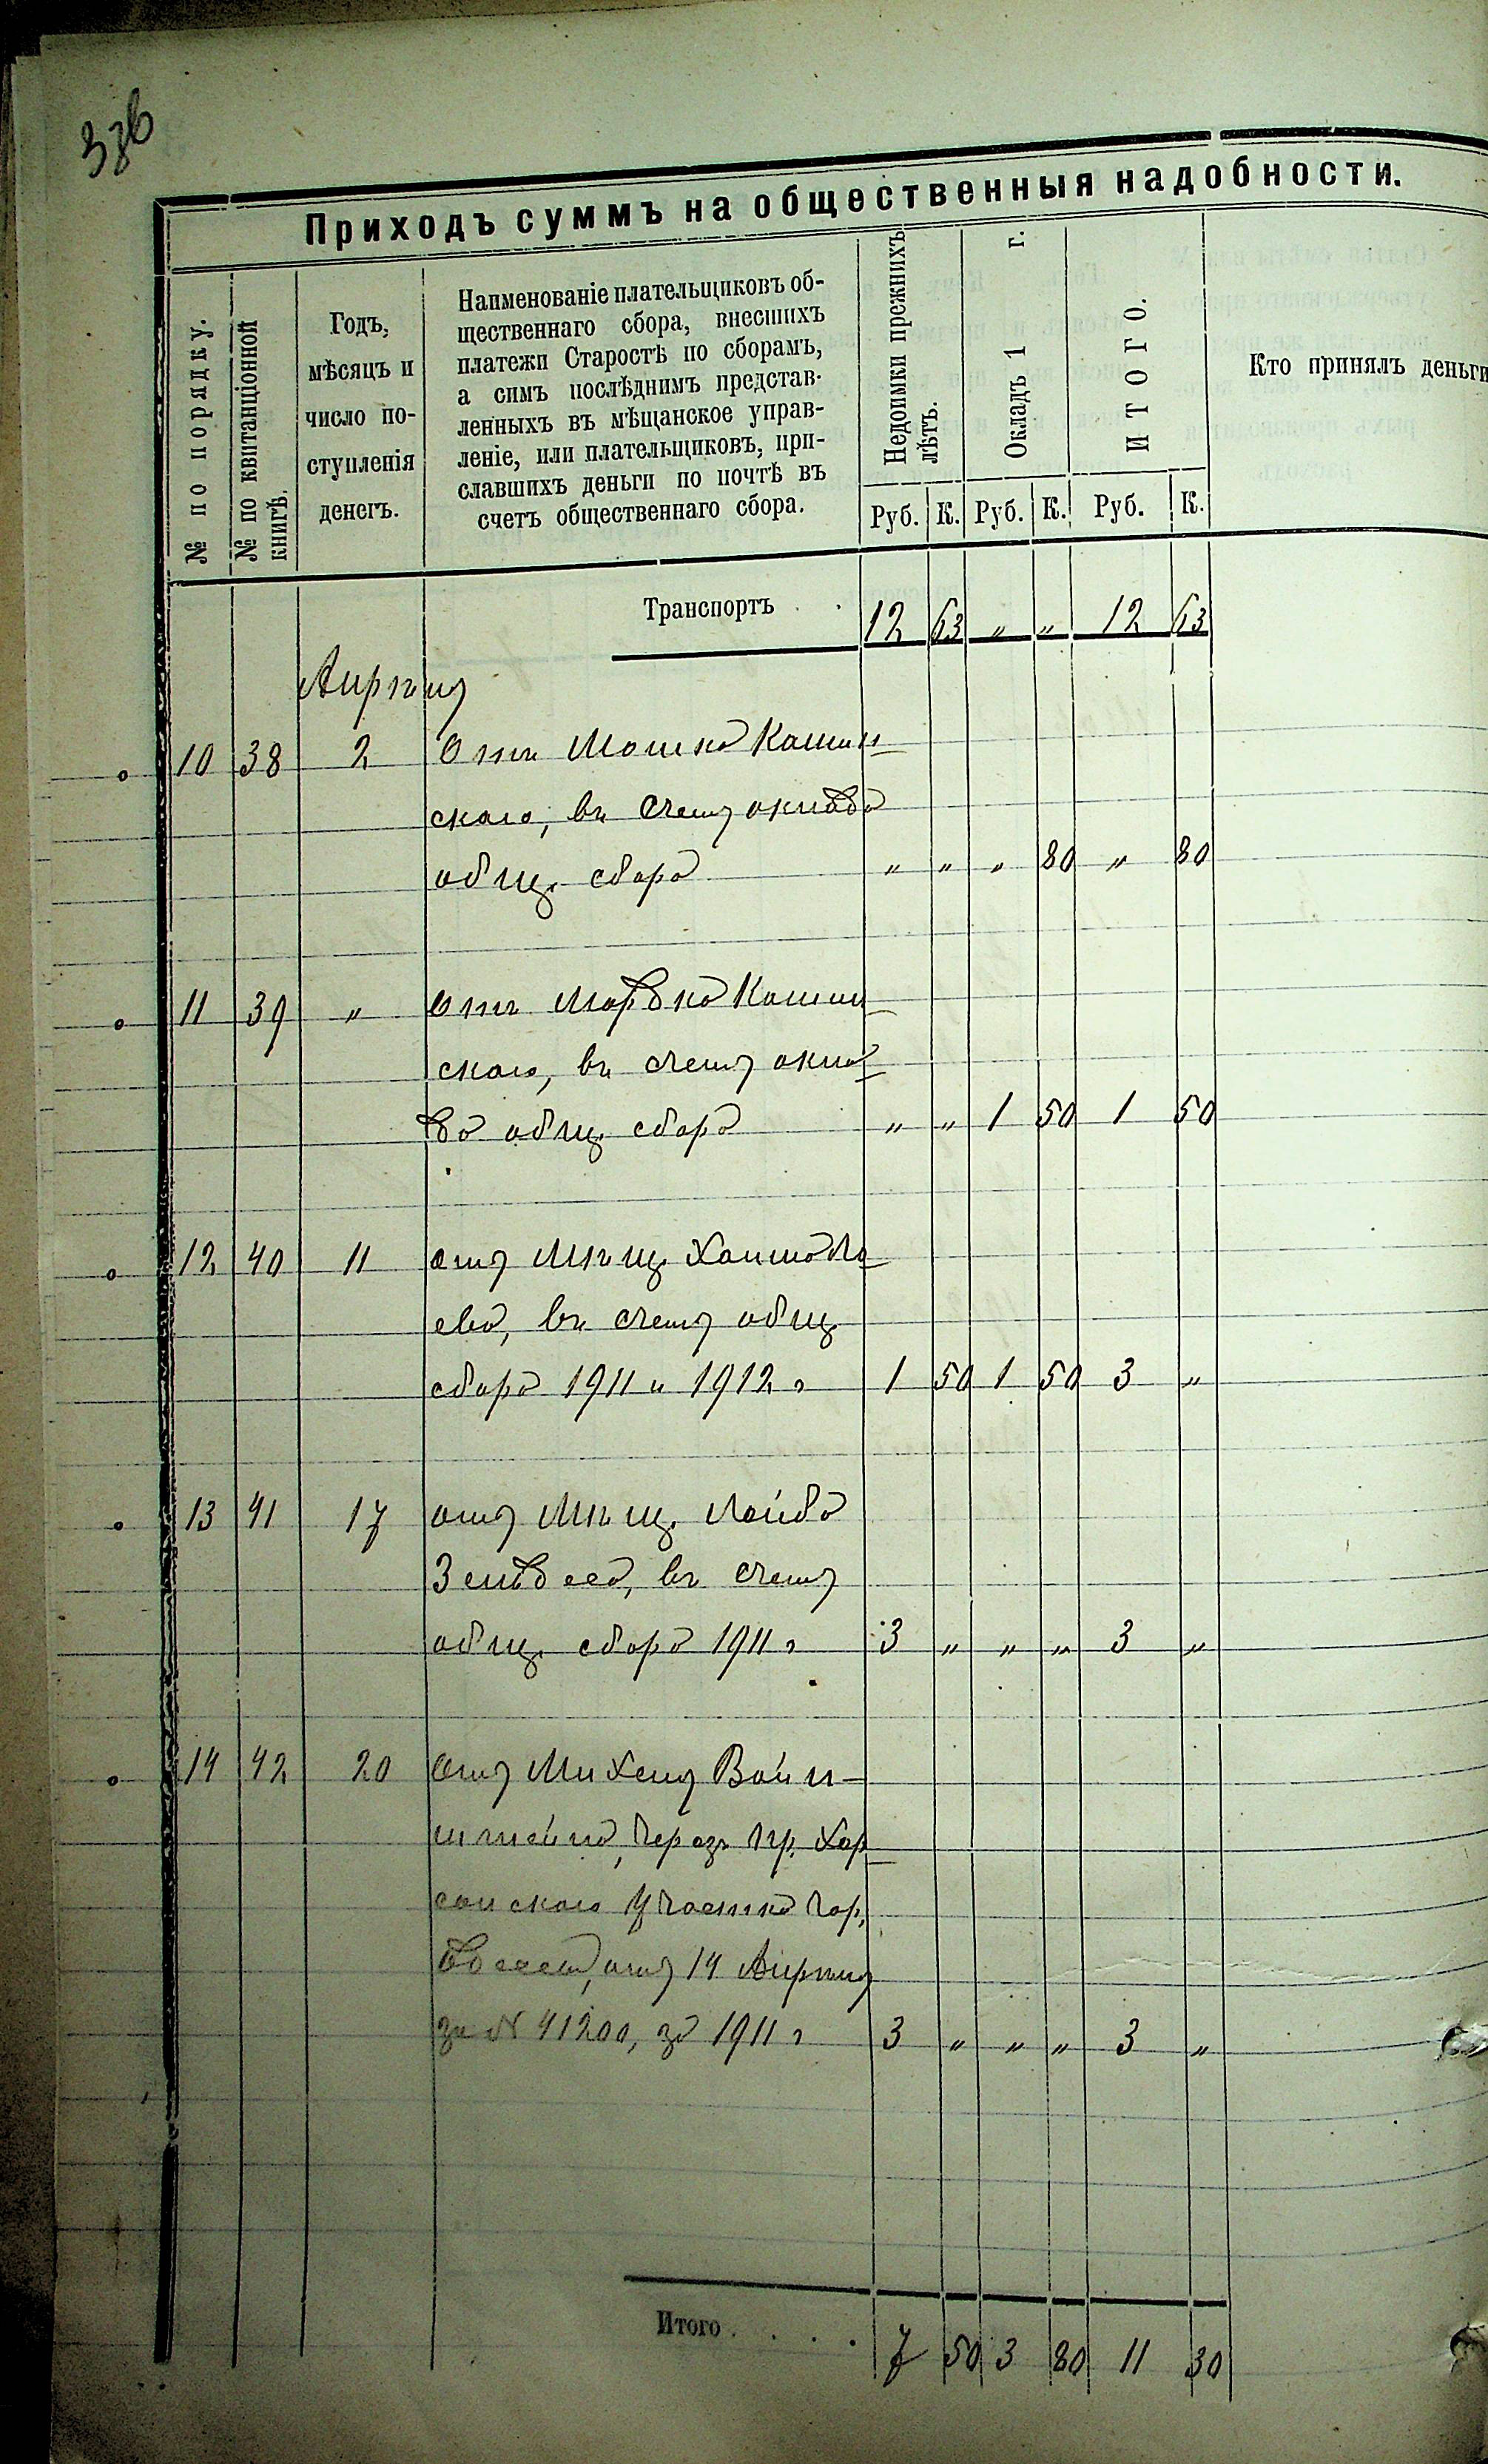 Приходъ суммъ на общественныя надобности.
№ по порядку.
№ по квитанціонной книгѣ.
Годъ,
мѣсяцъ и
число по-
ступленія
денегъ.
Наименованіе плательщиковъ об-
щественнаго сбора, внесшихъ
платежи Старостѣ по сборамъ,
а симъ послѣднимъ представ-
ленныхъ въ мѣщанское управ-
леніе, или плательщиковъ, при-
славшихъ деньги по почтѣ въ
счетъ общественнаго сбора.
Недоимки прежнихъ лѣтъ.
Окладъ 1 г.
ИТОГО.
Кто принялъ деньги
Руб. К. Руб. К. Руб. К.
Транспортъ . . 12 63 „ „ 12 63
Апрѣля
10 38 2 Отъ Мошка Кошин
скаго, въ счетъ оклада
общ. сбора „ „ „ 80 „ 80
11 39 „ Отъ Мордка Кошин
скаго, въ счетъ окла
да общ. сбора „ „ 1 50 1 50
12 40 11 отъ Мѣщ. Хаима
ева, въ счетъ общ.
сбора 1911 и 1912 г 1 50 1 50 3 „
13 41 17 отъ Мѣщ. Лейба
въ счетъ
общ. сбора 1911 г 3 „ „ „ 3 „
14 42 20 Отъ Михеля Вайн-
штейна, через Пр. Хер
сонскаго Участка Гор.
Одессы, отъ 14 Апрѣля
за № 41200, за 1911 г 3 „ „ „ 3 „
Итого . . . . 7 50 3 80 11 30